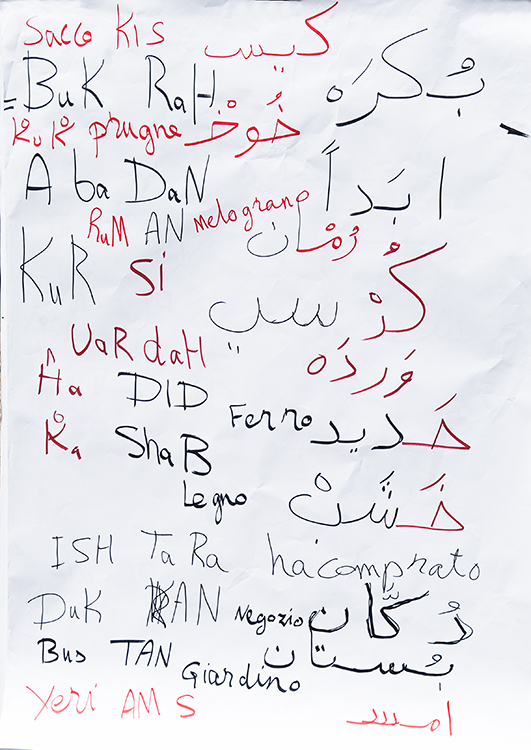 Sacco KIS كيس
= BuK RaH بُكرَه
KuK prugne خُوْخْ
A ba DaN ابَداً
RuM AN melograno رُمْان
KuR Si كُرْسي
UaR daH وَردَه
Ha DID Ferro حَديد
Ka ShaB خَشَبْ
Legno
ISH Ta Ra ha comprato
DuK KAN Negozio دُكّان
Bus TAN Giardino بُستان
Yeri AM S امس